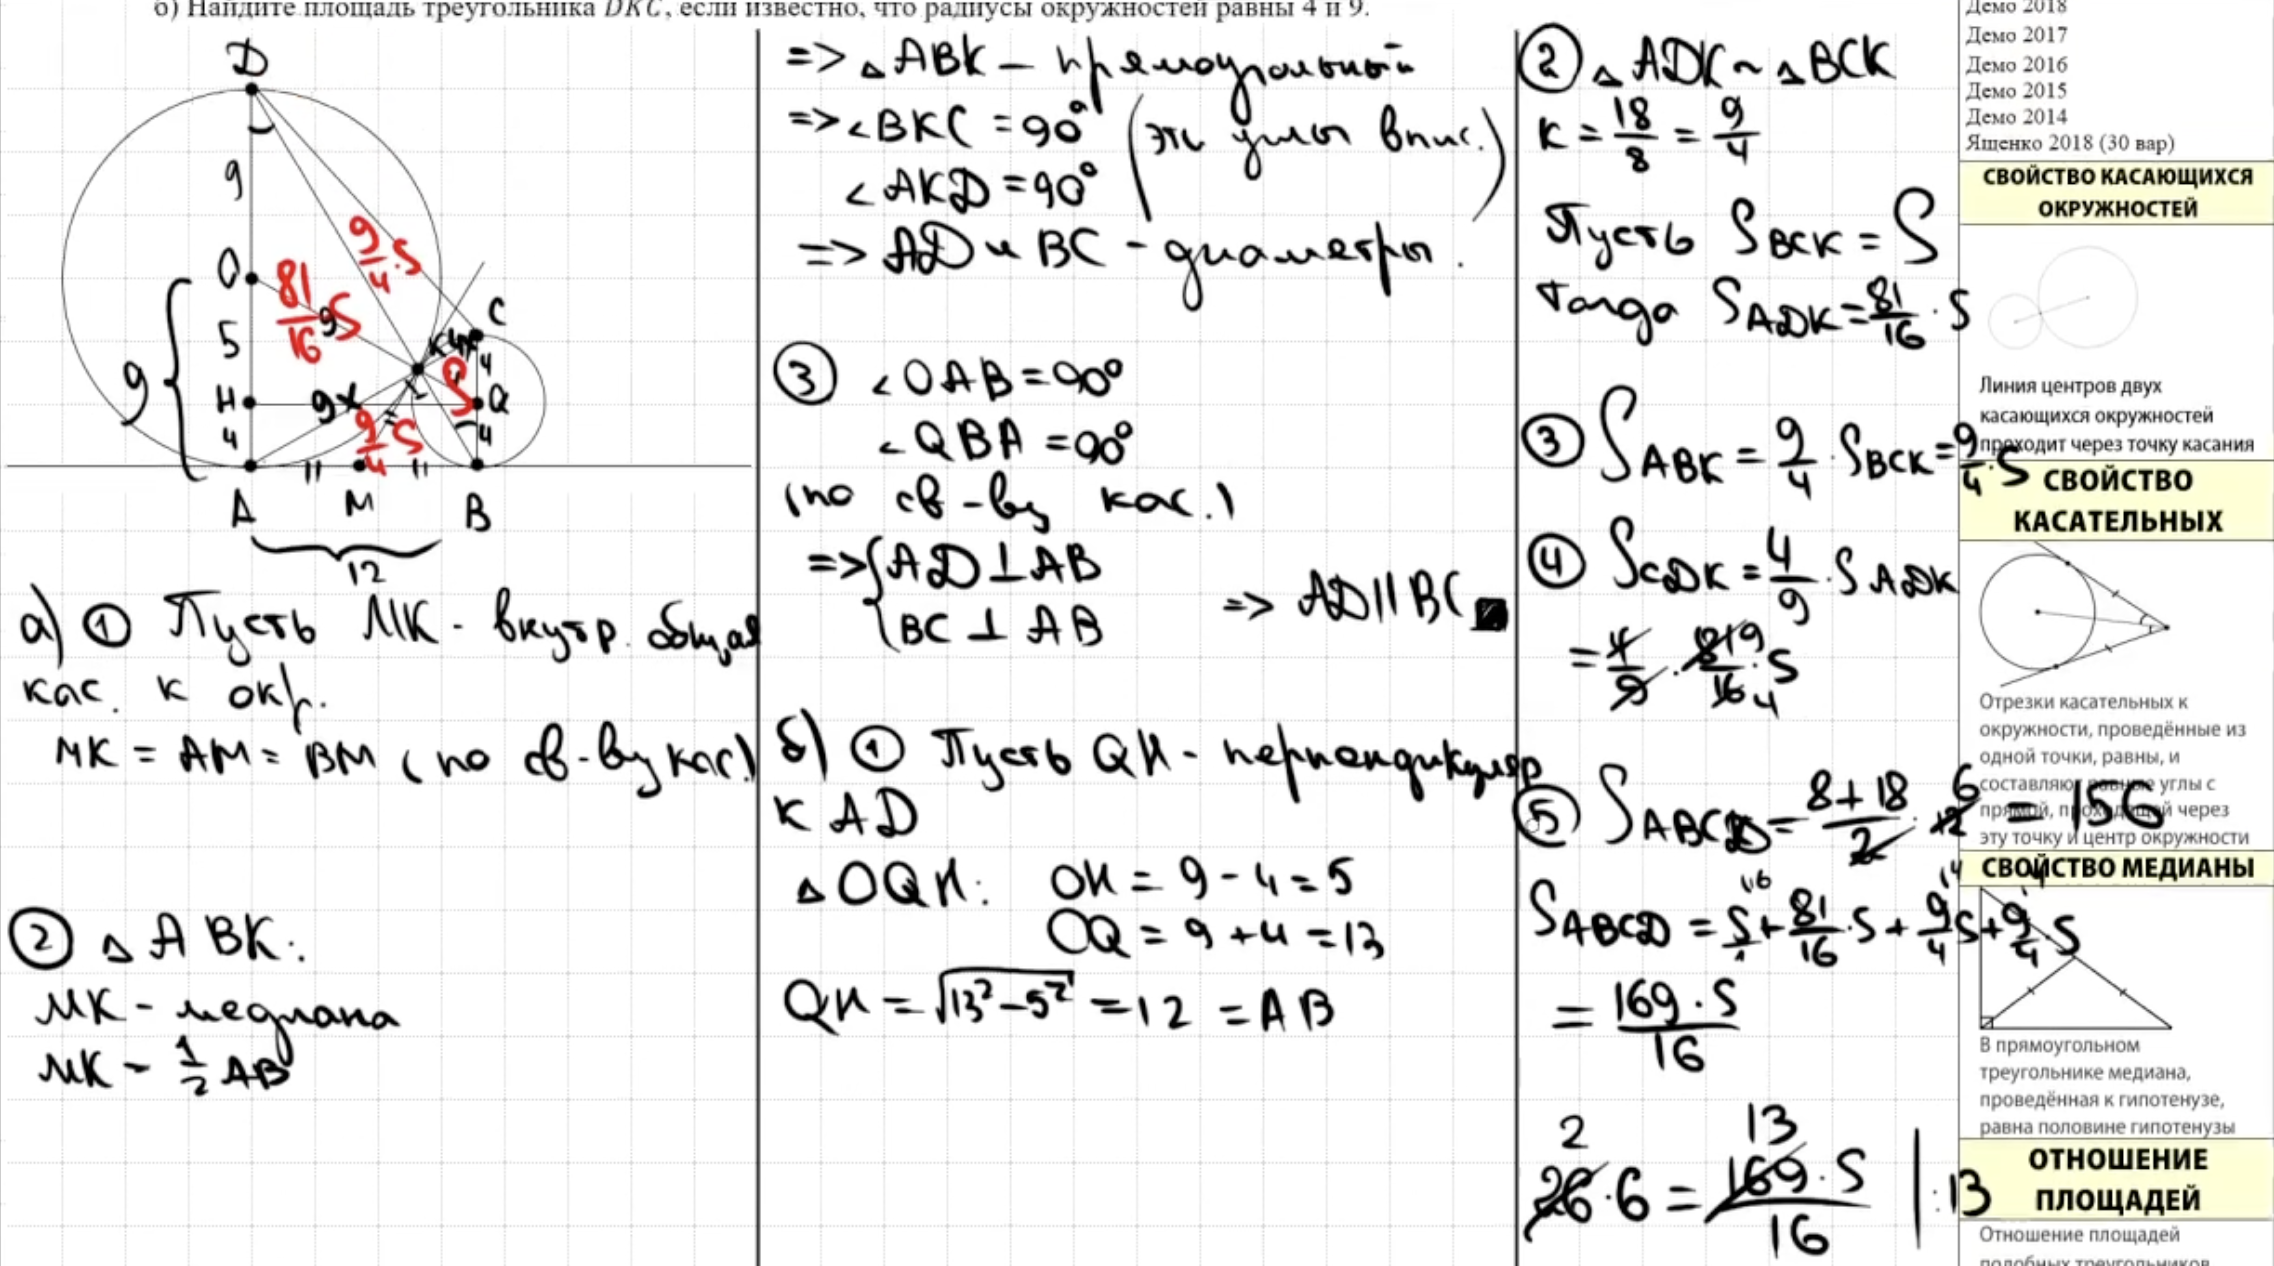 б) Найдите площадь треугольника DKC, если известно, что радиусы окружностей равны 4 и 9.
D
9
O
81/16 S
9/4 · S
9
5
9
C
K
4
4
H
9x
S
Q
4
9/4 S
4
A
M
B
12
а) ① Пусть MK - внутр. общая
кас. к окр.
MK = AM = BM (по св-ву кас.)
② △ABK:
MK - медиана
MK - 1/2 AB
=> △ABK - прямоугольный
=> ∠BKC = 90°
∠AKD = 90°
(эти углы впис.)
=> AD и BC - диаметры.
③ ∠OAB = 90°
∠QBA = 90°
(по св-ву кас.)
=> { AD ⊥ AB
BC ⊥ AB
=> AD || BC
б) ① Пусть QH - перпендикуляр
к AD
△OQH: OH = 9 - 4 = 5
OQ = 9 + 4 = 13
QH = √13² - 5² = 12 = AB
② △ADK ~ △BCK
K = 18/8 = 9/4
Пусть S BCK = S
тогда S ADK = 81/16 · S
③ S ABK = 9/4 · S BCK = 9/4 · S
④ S CDK = 4/9 · S ADK
= 4/9 · 81/16 · S
9
4
⑤ S ABCD = 8+18/2 · 12 = 156
6
S ABCD = S/1 + 81/16 · S + 9/4 S + 9/4 · S
16
4
4
= 169 · S/16
2
13
26 · 6 = 169 · S/16 | :13
Демо 2018
Демо 2017
Демо 2016
Демо 2015
Демо 2014
Ященко 2018 (30 вар)
СВОЙСТВО КАСАЮЩИХСЯ
ОКРУЖНОСТЕЙ
Линия центров двух
касающихся окружностей
проходит через точку касания
СВОЙСТВО
КАСАТЕЛЬНЫХ
Отрезки касательных к
окружности, проведённые из
одной точки, равны, и
составляют равные углы с
прямой, проходящей через
эту точку и центр окружности
СВОЙСТВО МЕДИАНЫ
В прямоугольном
треугольнике медиана,
проведённая к гипотенузе,
равна половине гипотенузы
ОТНОШЕНИЕ
ПЛОЩАДЕЙ
Отношение площадей
подобных треугольников